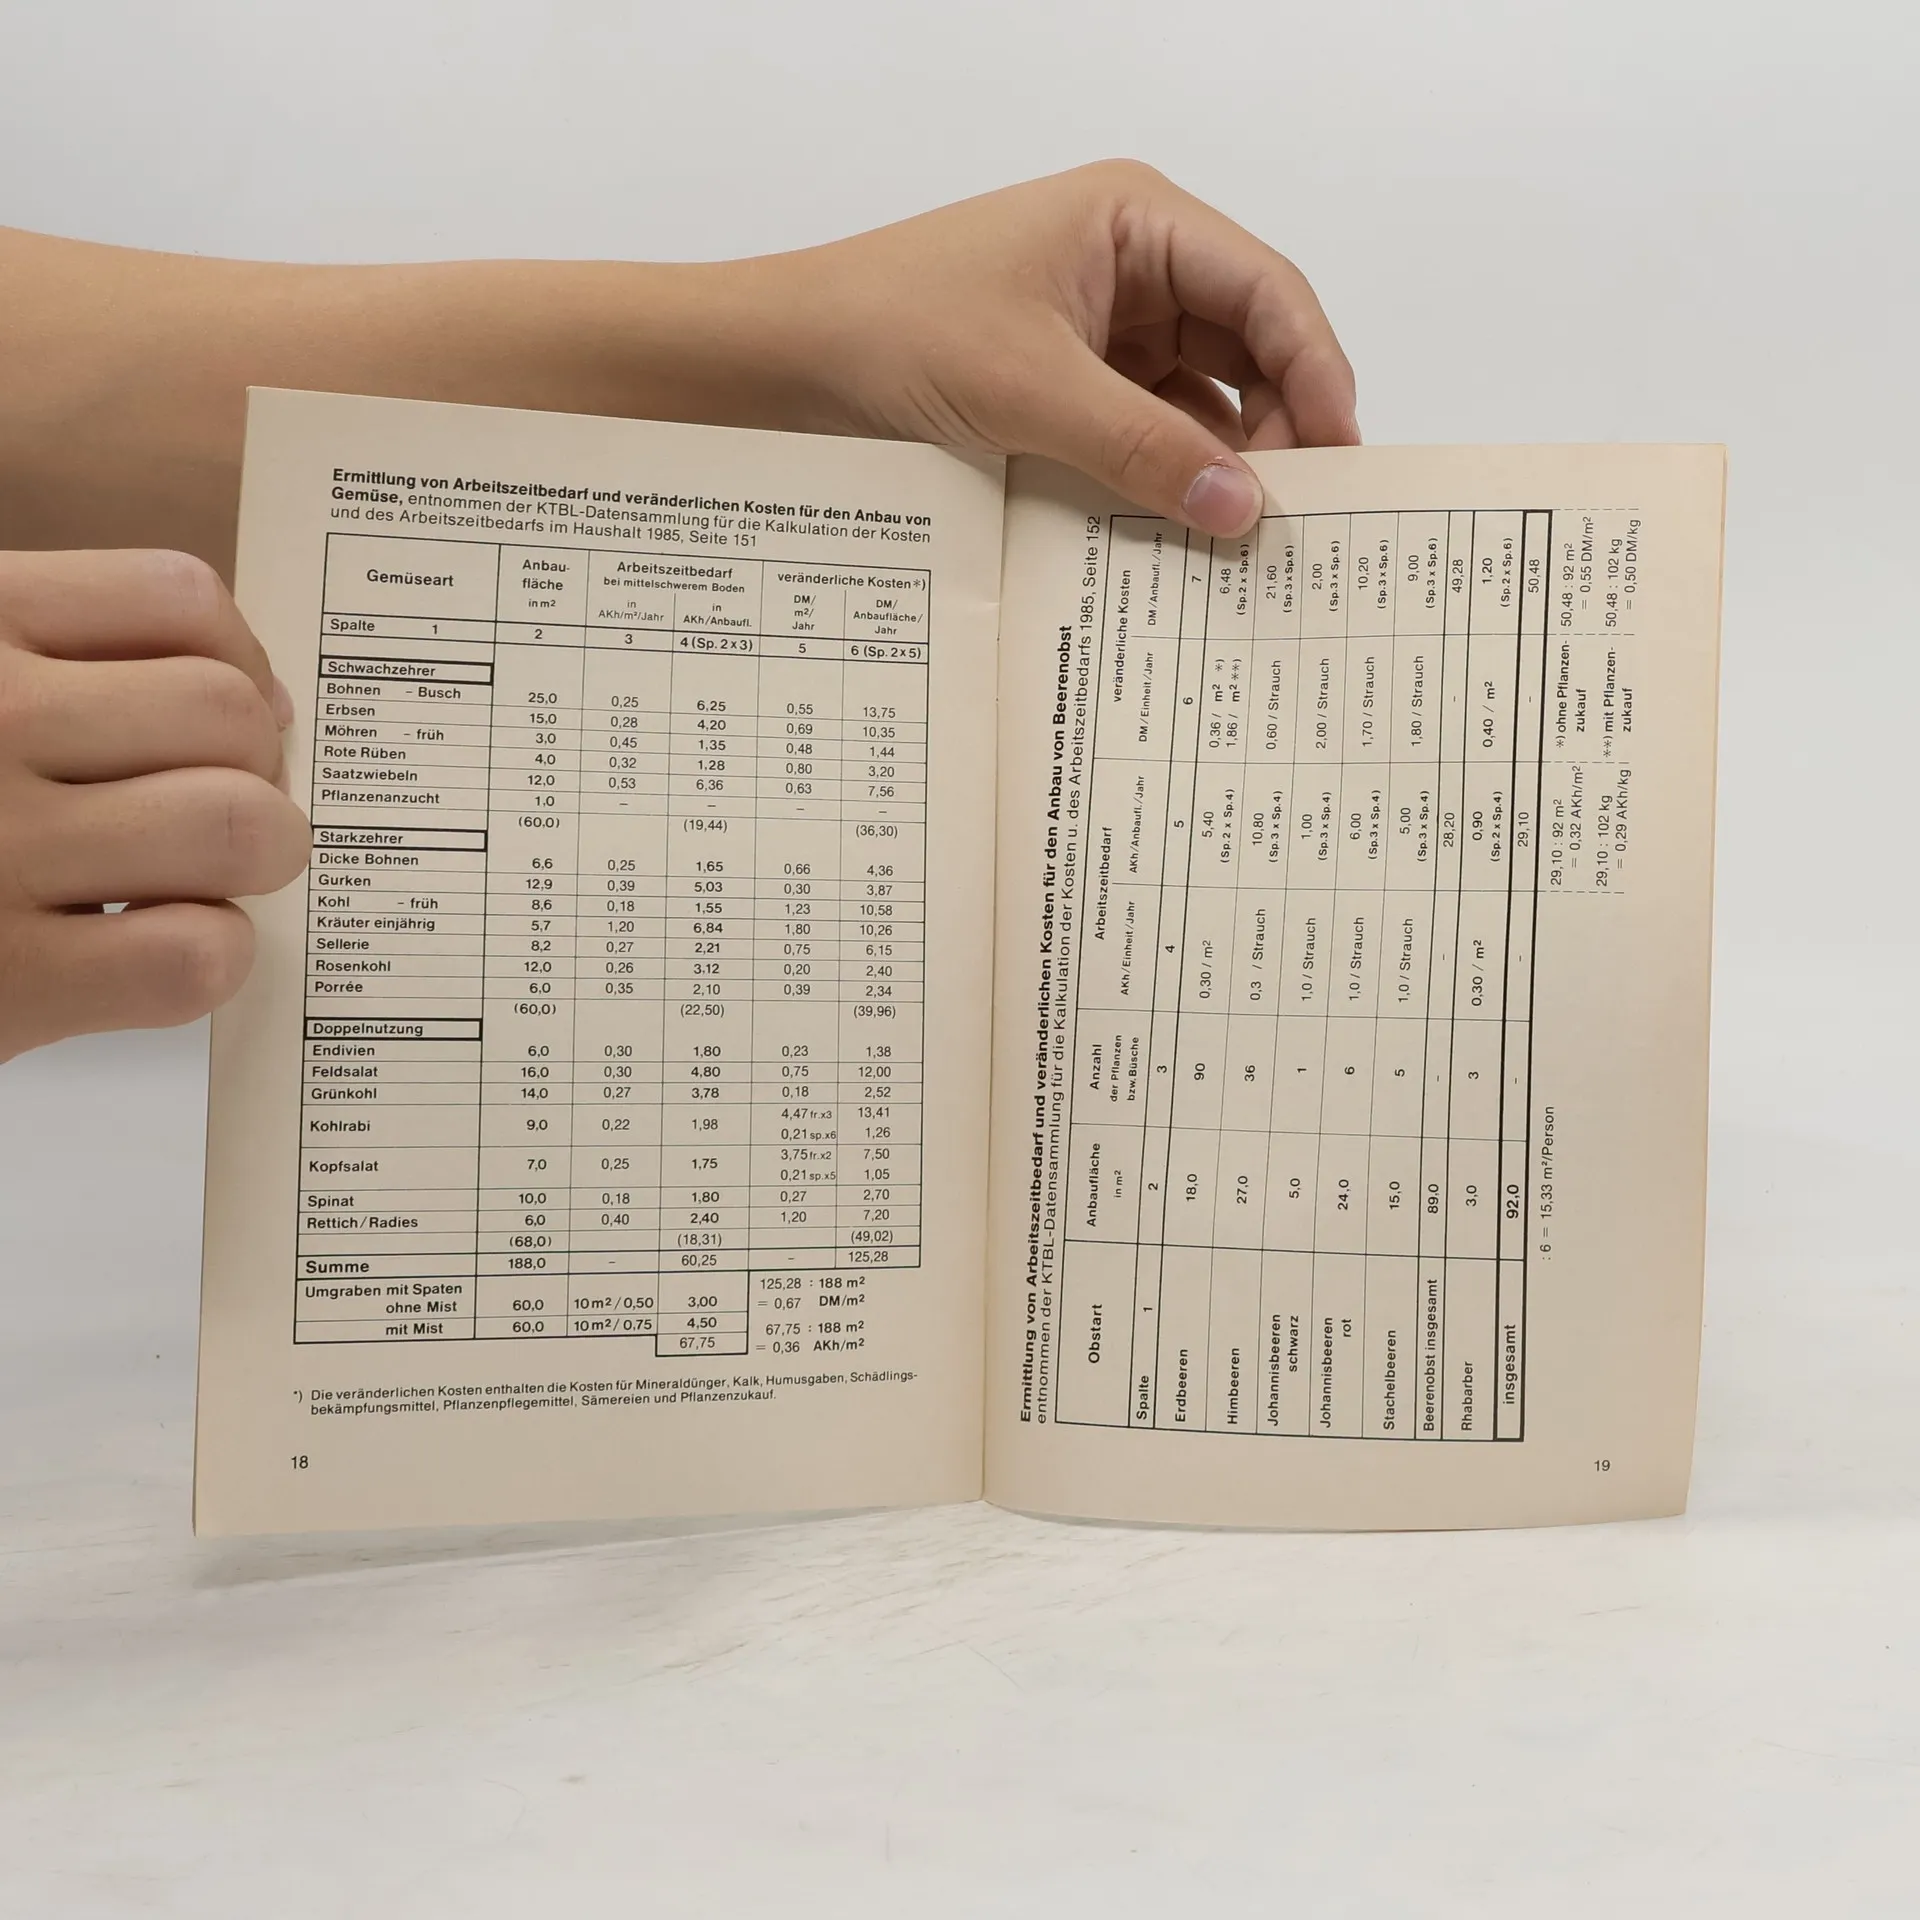 Ermittlung von Arbeitszeitbedarf und veränderlichen Kosten für den Anbau von
Gemüse, entnommen der KTBL-Datensammlung für die Kalkulation der Kosten
und des Arbeitszeitbedarfs im Haushalt 1985, Seite 151
Gemüseart Anbau- Arbeitszeitbedarf veränderliche Kosten*)
fläche bei mittelschwerem Boden
in m² in in DM/ DM/
AKh/m²/Jahr AKh/Anbaufl. m²/ Anbaufläche/
Jahr Jahr
Spalte 1 2 3 4 (Sp. 2x3) 5 6 (Sp. 2x5)
Schwachzehrer
Bohnen - Busch 25,0 0,25 6,25 0,55 13,75
Erbsen 15,0 0,28 4,20 0,69 10,35
Möhren - früh 3,0 0,45 1,35 0,48 1,44
Rote Rüben 4,0 0,32 1,28 0,80 3,20
Saatzwiebeln 12,0 0,53 6,36 0,63 7,56
Pflanzenanzucht 1,0 – – – –
(60,0) (19,44) (36,30)
Starkzehrer
Dicke Bohnen 6,6 0,25 1,65 0,66 4,36
Gurken 12,9 0,39 5,03 0,30 3,87
Kohl - früh 8,6 0,18 1,55 1,23 10,58
Kräuter einjährig 5,7 1,20 6,84 1,80 10,26
Sellerie 8,2 0,27 2,21 0,75 6,15
Rosenkohl 12,0 0,26 3,12 0,20 2,40
Porrée 6,0 0,35 2,10 0,39 2,34
(60,0) (22,50) (39,96)
Doppelnutzung
Endivien 6,0 0,30 1,80 0,23 1,38
Feldsalat 16,0 0,30 4,80 0,75 12,00
Grünkohl 14,0 0,27 3,78 0,18 2,52
Kohlrabi 9,0 0,22 1,98 4,47 fr.x3 13,41
0,21 sp.x6 1,26
Kopfsalat 7,0 0,25 1,75 3,75 fr.x2 7,50
0,21 sp.x5 1,05
Spinat 10,0 0,18 1,80 0,27 2,70
Rettich/Radies 6,0 0,40 2,40 1,20 7,20
(68,0) (18,31) (49,02)
Summe 188,0 – 60,25 – 125,28
Umgraben mit Spaten 125,28 : 188 m²
ohne Mist 60,0 10m²/0,50 3,00 = 0,67 DM/m²
mit Mist 60,0 10m²/0,75 4,50 67,75 : 188 m²
67,75 = 0,36 AKh/m²
*) Die veränderlichen Kosten enthalten die Kosten für Mineraldünger, Kalk, Humusgaben, Schädlings-
bekämpfungsmittel, Pflanzenpflegemittel, Sämereien und Pflanzenzukauf.
18
Ermittlung von Arbeitszeitbedarf und veränderlichen Kosten für den Anbau von Beerenobst
entnommen der KTBL-Datensammlung für die Kalkulation der Kosten u. des Arbeitszeitbedarfs 1985, Seite 152
Obstart Anbaufläche Anzahl Arbeitszeitbedarf veränderliche Kosten
in m² der Pflanzen AKh/Einheit/Jahr AKh/Anbaufl./Jahr DM/Einheit/Jahr DM/Anbaufl./Jahr
bzw. Büsche
Spalte 1 2 3 4 5 6 7
Erdbeeren 18,0 90 0,30 / m² 5,40 0,36 / m² *) 6,48
(Sp. 2 x Sp.4) 1,86 / m² **) (Sp. 2 x Sp.6)
Himbeeren 27,0 36 0,3 / Strauch 10,80 0,60 / Strauch 21,60
(Sp.3 x Sp.4) (Sp.3 x Sp.6)
Johannisbeeren 5,0 1 1,0 / Strauch 1,00 2,00 / Strauch 2,00
schwarz (Sp.3 x Sp.4) (Sp.3 x Sp.6)
Johannisbeeren 24,0 6 1,0 / Strauch 6,00 1,70 / Strauch 10,20
rot (Sp.3 x Sp.4) (Sp.3 x Sp.6)
Stachelbeeren 15,0 5 1,0 / Strauch 5,00 1,80 / Strauch 9,00
(Sp.3 x Sp.4) (Sp.3 x Sp.6)
Beerenobst insgesamt 89,0 – – 28,20 – 49,28
Rhabarber 3,0 3 0,30 / m² 0,90 0,40 / m² 1,20
(Sp.2 x Sp.4) (Sp.2 x Sp.6)
insgesamt 92,0 – – 29,10 – 50,48
: 6 = 15,33 m²/Person 29,10 : 92 m² *) ohne Pflanzen- 50,48 : 92 m²
= 0,32 AKh/m² zukauf = 0,55 DM/m²
29,10 : 102 kg **) mit Pflanzen- 50,48 : 102 kg
= 0,29 AKh/kg zukauf = 0,50 DM/kg
19